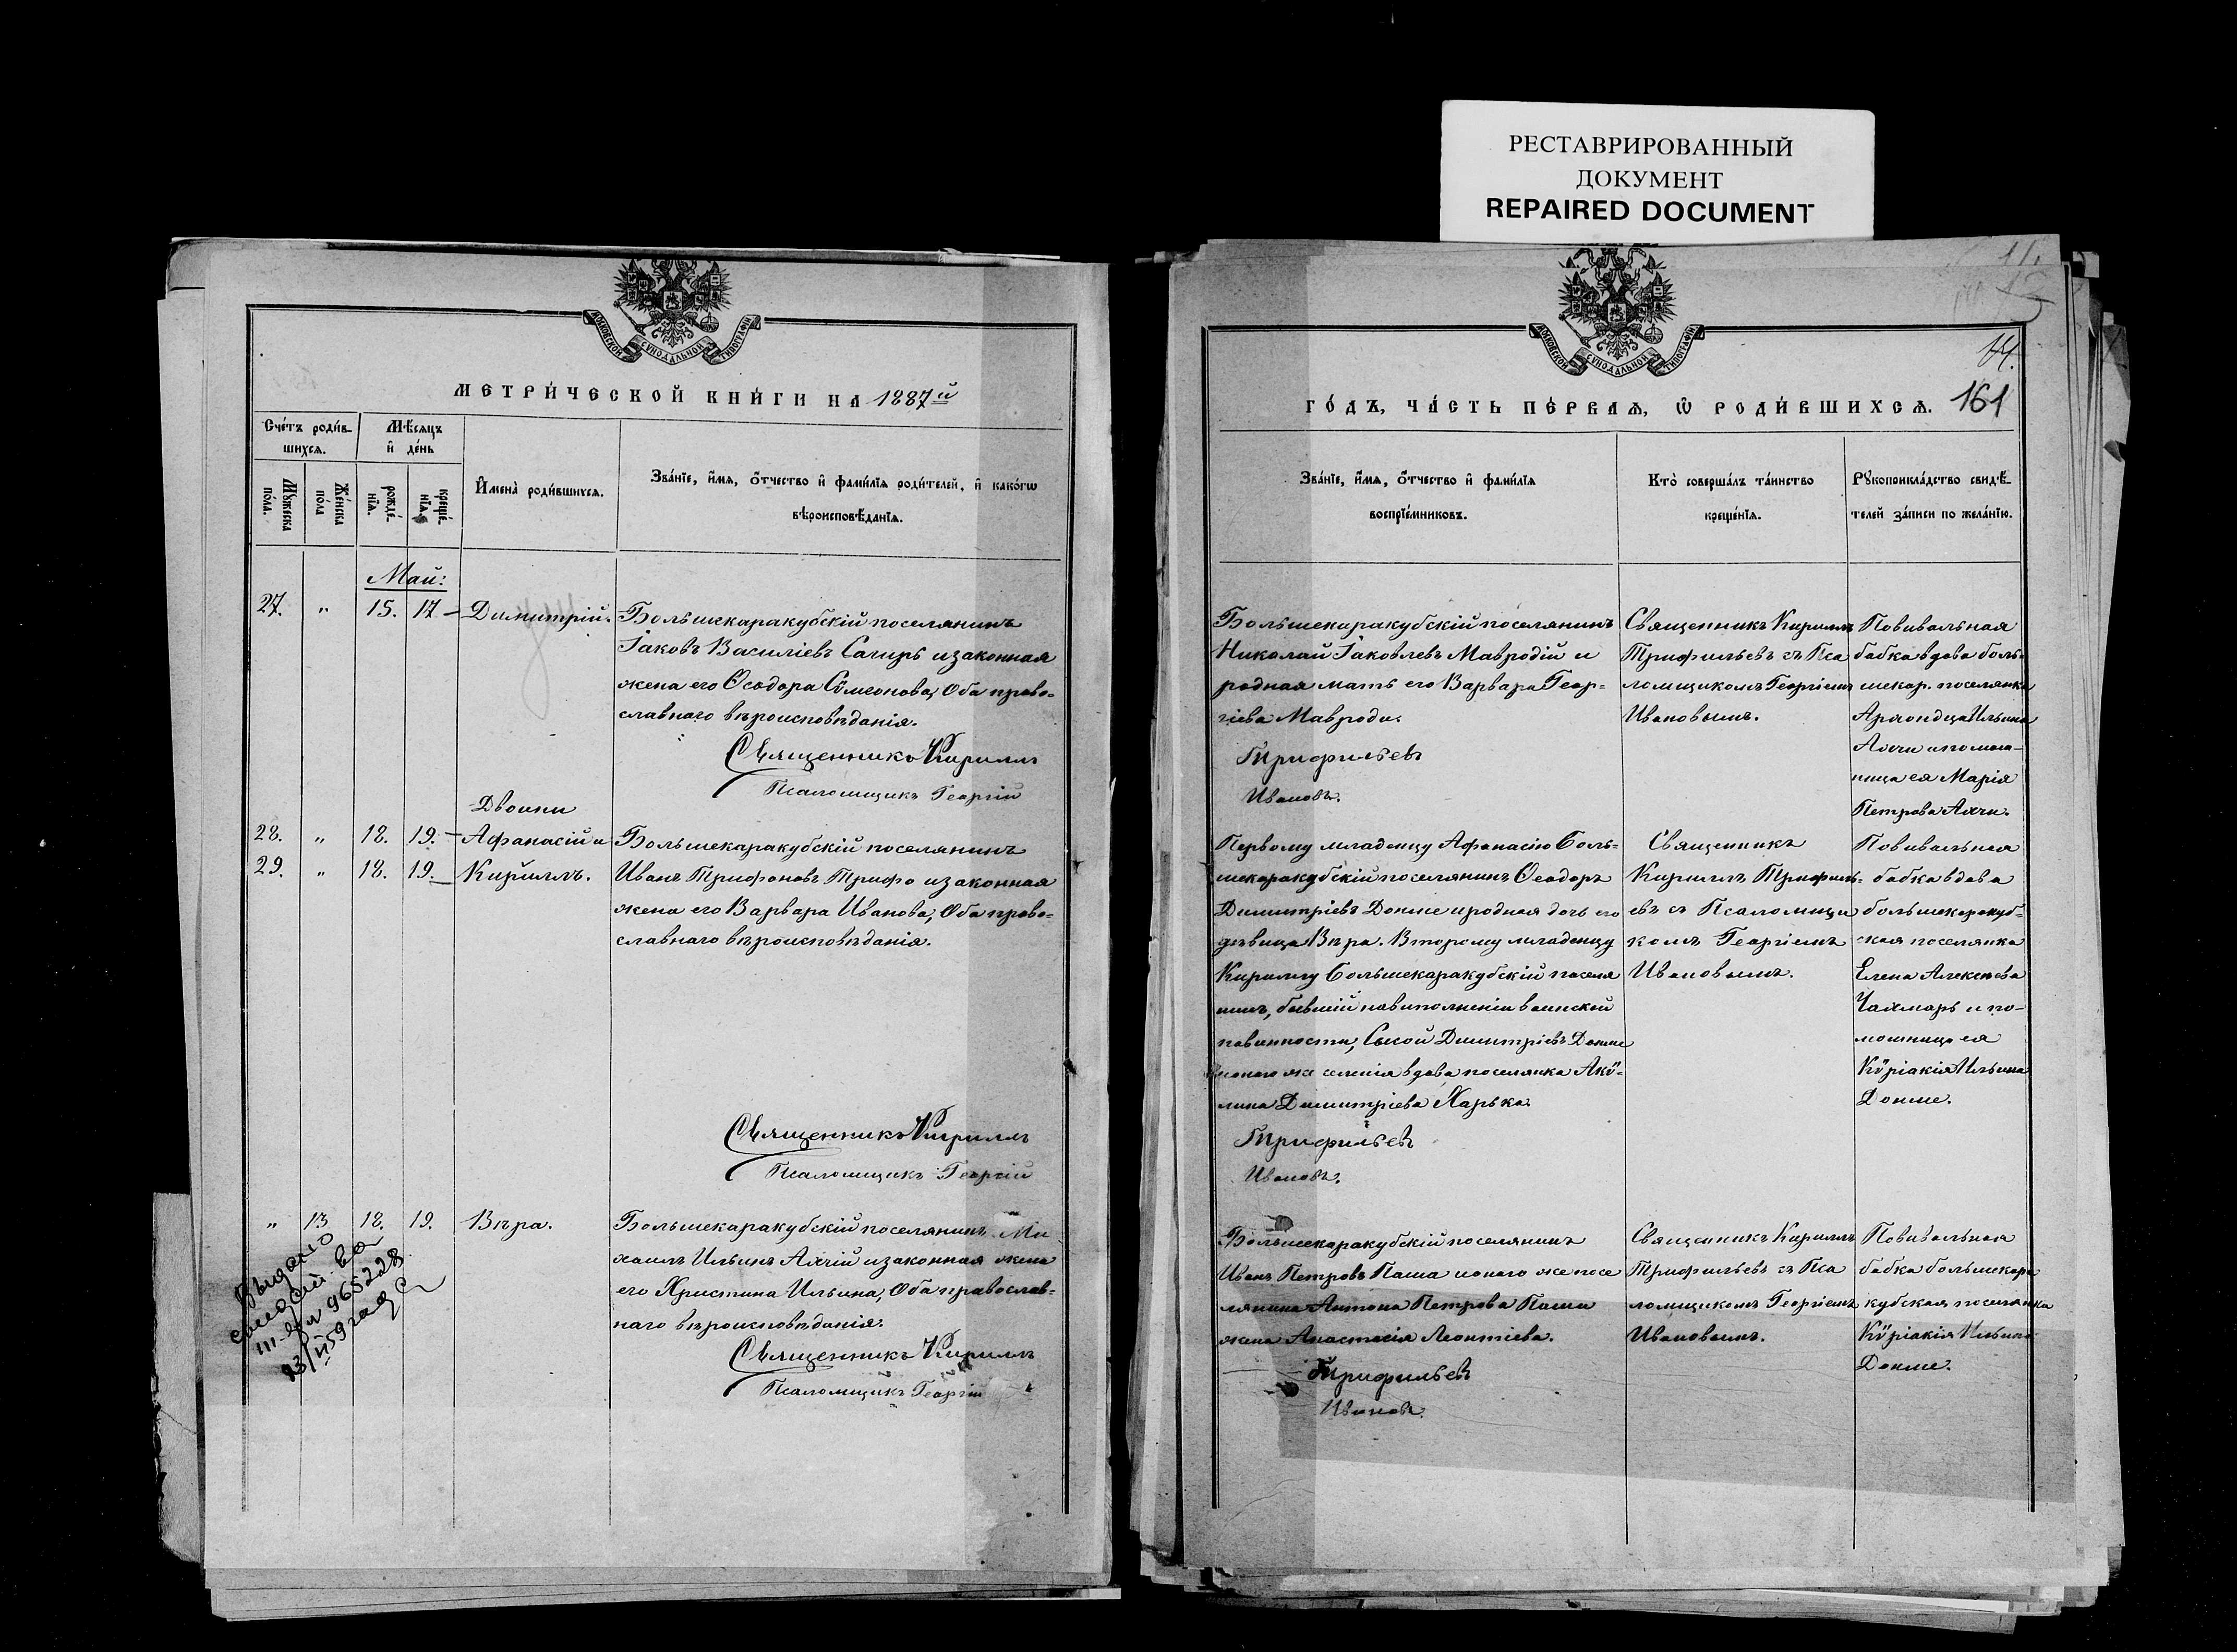 РЕСТАВРИРОВАННЫЙ
ДОКУМЕНТ
REPAIRED DOCUMENT
МОСКОВСКОЙ СѴНОДАЛЬНОЙ ТИПОГРАФІИ
МЕТРИ́ЧЕСКОЙ КНИ́ГИ НА 1887й
Сче́тъ роди́в-
шихсѧ.
Мѣ́сѧцъ
и҆ де́нь
Мꙋ́жеска
по́ла.
Же́нска
по́ла
рожде́-
нїѧ.
креще́-
нїѧ.
И҆мена̀ роди́вшихсѧ.
Зва́нїе, и҆́мѧ, ѻ҆́тчество и҆ фами́лїѧ роди́телей, и҆ како́гѡ
вѣроисповѣ́данїѧ.
Май:
27. " 15. 17 – Димитрій. Большекаракубскій поселянинъ
Іаковъ Василіевъ Сагирь и законная
жена его Ѳеодора Сѵмеонова, Оба право-
славнаго вѣроисповѣданія.
Священникъ Кириллъ
Псаломщикъ Георгій
Двойни
28. " 18. 19. – Афанасій и Большекаракубскій поселянинъ
29. " 18. 19. – Кириллъ. Иванъ Трифоновъ Трифо и законная
жена его Варвара Иванова, Оба право-
славнаго вѣроисповѣданія.
Священникъ Кириллъ
Псаломщикъ Георгій
" 13 18. 19. Вѣра. Большекаракубскій поселянинъ Ми
хаилъ Ильинъ Алчій и законная жена
его Христина Ильина, Оба православ-
наго вѣроисповѣданія.
Священникъ Кириллъ
Псаломщикъ Георгій
Выдано
965228
МОСКОВСКОЙ СѴНОДАЛЬНОЙ ТИПОГРАФІИ
11.
14.
161
ГО́ДЪ, ЧА́СТЬ ПЕ́РВАѦ, Ѡ҆ РОДИ́ВШИХСѦ.
Зва́нїе, и҆́мѧ, ѻ҆́тчество и҆ фами́лїѧ
воспрїе́мниковъ.
Кто̀ соверша́лъ та́инство
креще́нїѧ.
Рꙋкоприкла́дство свидѣ́-
телей за́писи по жела́нїю.
Большекаракубскій поселянинъ
Николай Іаковлевъ Мавродій и
родная мать его Варвара Геор-
гіева Мавроди.
Трифильевъ
Ивановъ.
Священникъ Кириллъ
Трифильевъ съ Пса
ломщикомъ Георгіемъ
Ивановымъ.
Повивальная
бабка вдова боль-
шекар. поселянка
Ильина
Марія
Петрова
Первому младенцу Афанасію боль-
шекаракубскій поселянинъ Ѳеодоръ
Димитріевъ Донше и родная дочь его
дѣвица Вѣра. Второму младенцу
Кириллу большекаракубскій поселя
нинъ, бывшій на выполненіи воинской
повинности, Сысой Димитріевъ Донше
и оного же селенія вдова поселянка Акѵ-
лина Димитріева Харька.
Трифильевъ
Ивановъ.
Священникъ
Кириллъ Трифиль-
евъ съ Псаломщи
комъ Георгіемъ
Ивановымъ.
Повивальная
бабка вдова
большекаракуб-
ская поселянка
Елена Алексѣева
Чахмарь и по-
мощница ея
Кѵріакія Ильина
Донше.
Большекаракубскій поселянинъ
Иванъ Петровъ Паша и оного же посе
лянина Антона Петрова Паши
жена Анастасія Леонтіева.
Трифильевъ
Ивановъ.
Священникъ Кириллъ
Трифильевъ съ Пса
ломщикомъ Георгіемъ
Ивановымъ.
Повивальная
бабка большекара
кубская поселянка
Кѵріакія Ильина
Донше.